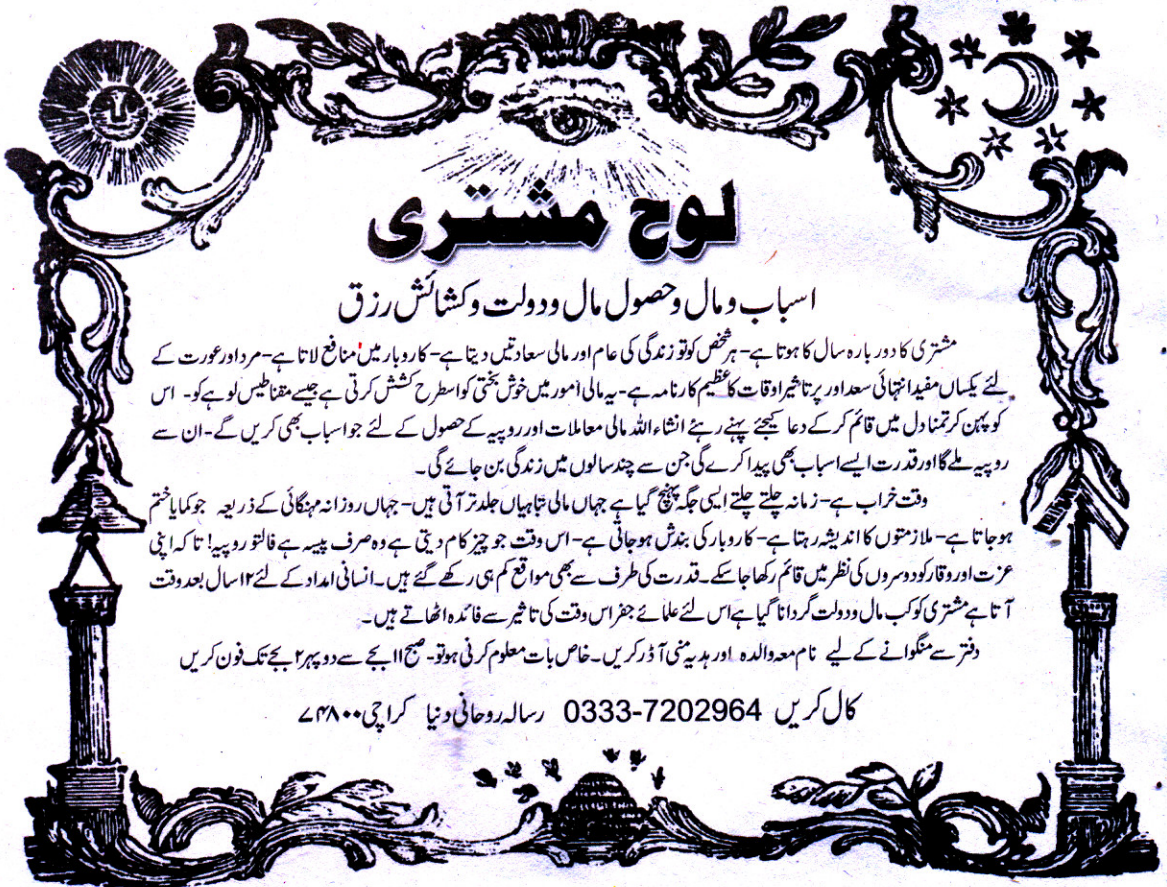 لوح مشتری
اسباب و مال و حصول مال و دولت و کشائش رزق
مشتری کا دور بارہ سال کا ہوتا ہے- ہر شخص کو تو زندگی کی عام اور مالی سعادتیں دیتا ہے- کاروبار میں منافع لاتا ہے- مرد اور عورت کے
لئے یکساں مفید انتہائی سعد اور پرتاثیر اوقات کا عظیم کارنامہ ہے- یہ مالی امور میں خوش بختی کو اسطرح کشش کرتی ہے جیسے مقناطیس لوہے کو- اس
کو پہن کر تمنا دل میں قائم کر کے دعا کیجئے پہنے رہئے انشاء اللہ مالی معاملات اور روپیہ کے حصول کے لئے جو اسباب بھی کریں گے- ان سے
روپیہ ملے گا اور قدرت ایسے اسباب بھی پیدا کرے گی جن سے چند سالوں میں زندگی بن جائے گی۔
وقت خراب ہے- زمانہ چلتے چلتے ایسی جگہ پہنچ گیا ہے جہاں مالی تباہیاں جلد تر آتی ہیں- جہاں روزانہ مہنگائی کے ذریعہ جو کمایا ختم
ہوجاتا ہے- ملازمتوں کا اندیشہ رہتا ہے- کاروبار کی بندش ہوجاتی ہے- اس وقت جو چیز کام دیتی ہے وہ صرف پیسہ ہے فالتو روپیہ! تا کہ اپنی
عزت اور وقار کو دوسروں کی نظر میں قائم رکھا جاسکے۔ قدرت کی طرف سے بھی مواقع کم ہی رکھے گئے ہیں۔ انسانی امداد کے لئے ۱۲ سال بعد وقت
آتا ہے مشتری کو کب مال و دولت گردانا گیا ہے اس لئے علمائے جفر اس وقت کی تاثیر سے فائدہ اٹھاتے ہیں۔
دفتر سے منگوانے کے لیے نام معہ والدہ اور ہدیہ منی آڈر کریں۔ خاص بات معلوم کرنی ہوتو- صبح ۱۱ بجے سے دوپہر ۲ بجے تک فون کریں
کال کریں 0333-7202964 رسالہ روحانی دنیا کراچی ۷۴۸۰۰